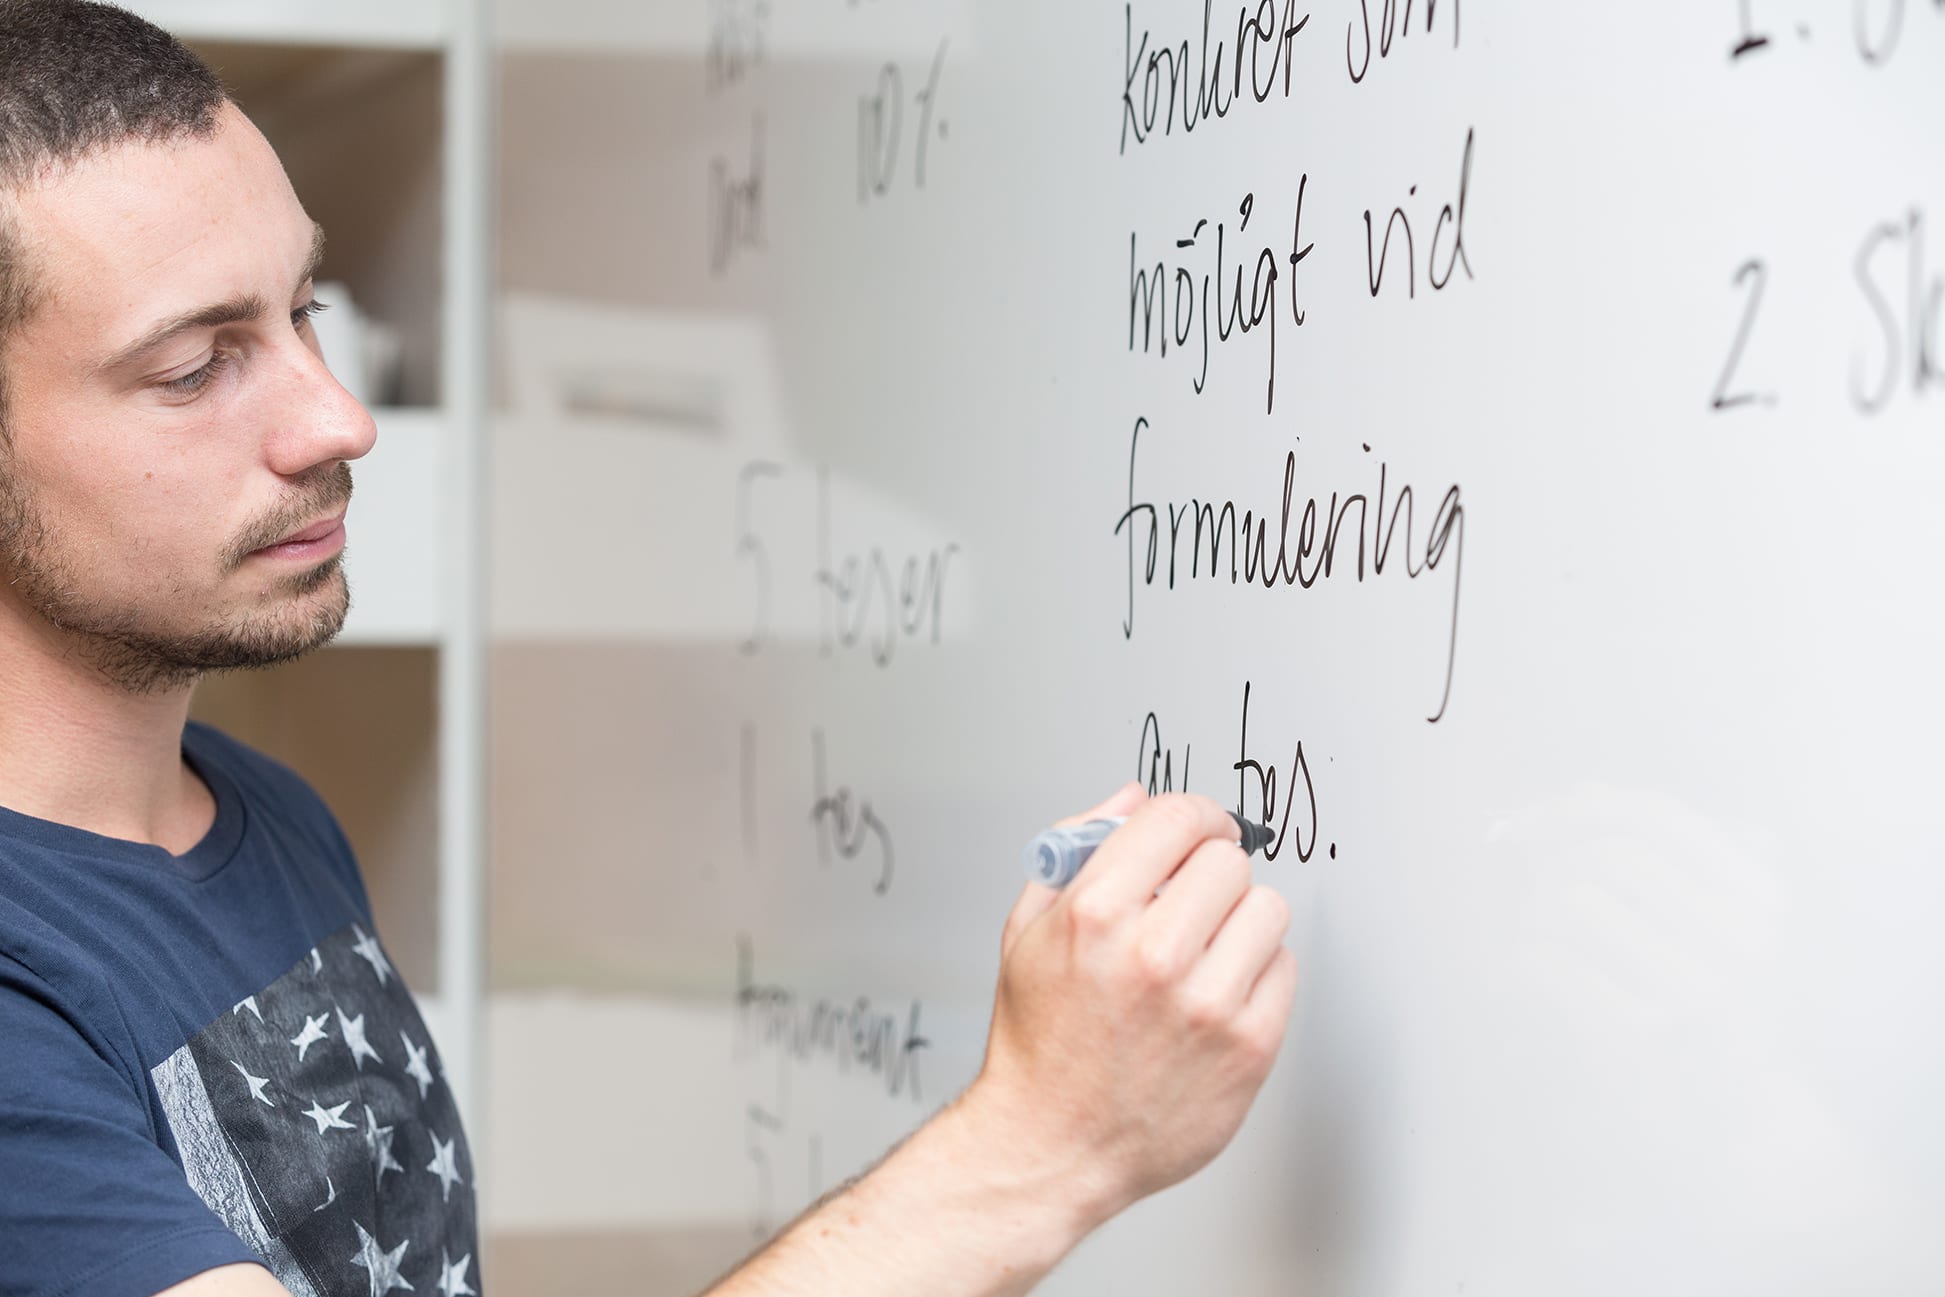 10%
5 teser
1 tes
argument
5
konkret som
möjligt vid
formulering
av tes.
1. S
2. Sk